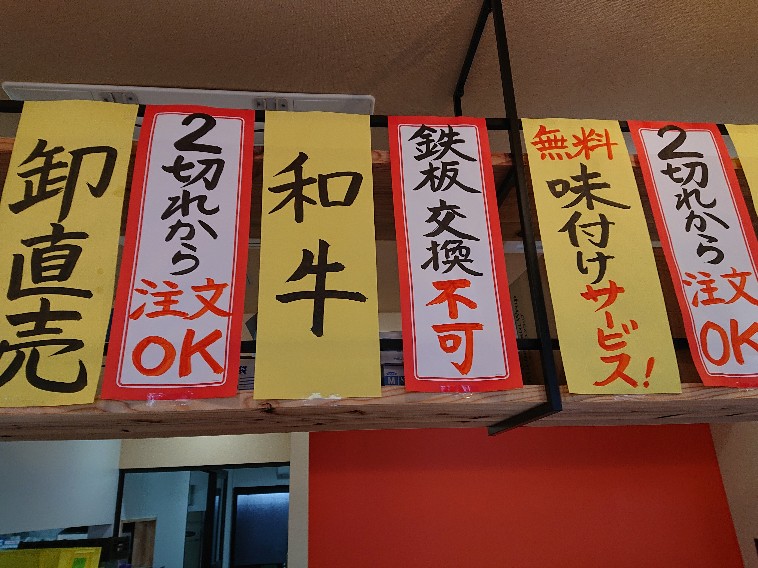 卸直売
2切れから
注文
OK
和牛
鉄板交換
不可
無料
味付け
サービス!
2切れから
注文
OK
M